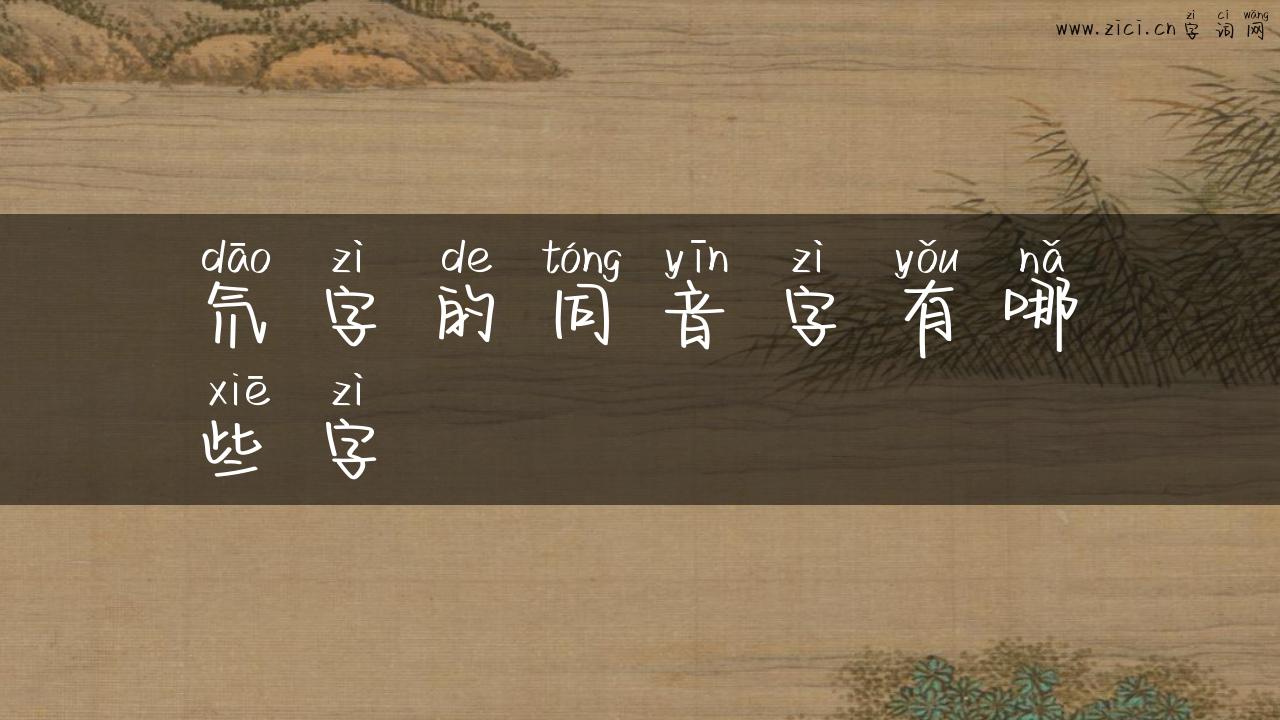 zì cí wǎng
www.zici.cn 字词网
dāo zì de tóng yīn zì yǒu nǎ
氘字的同音字有哪
xiē zì
些字